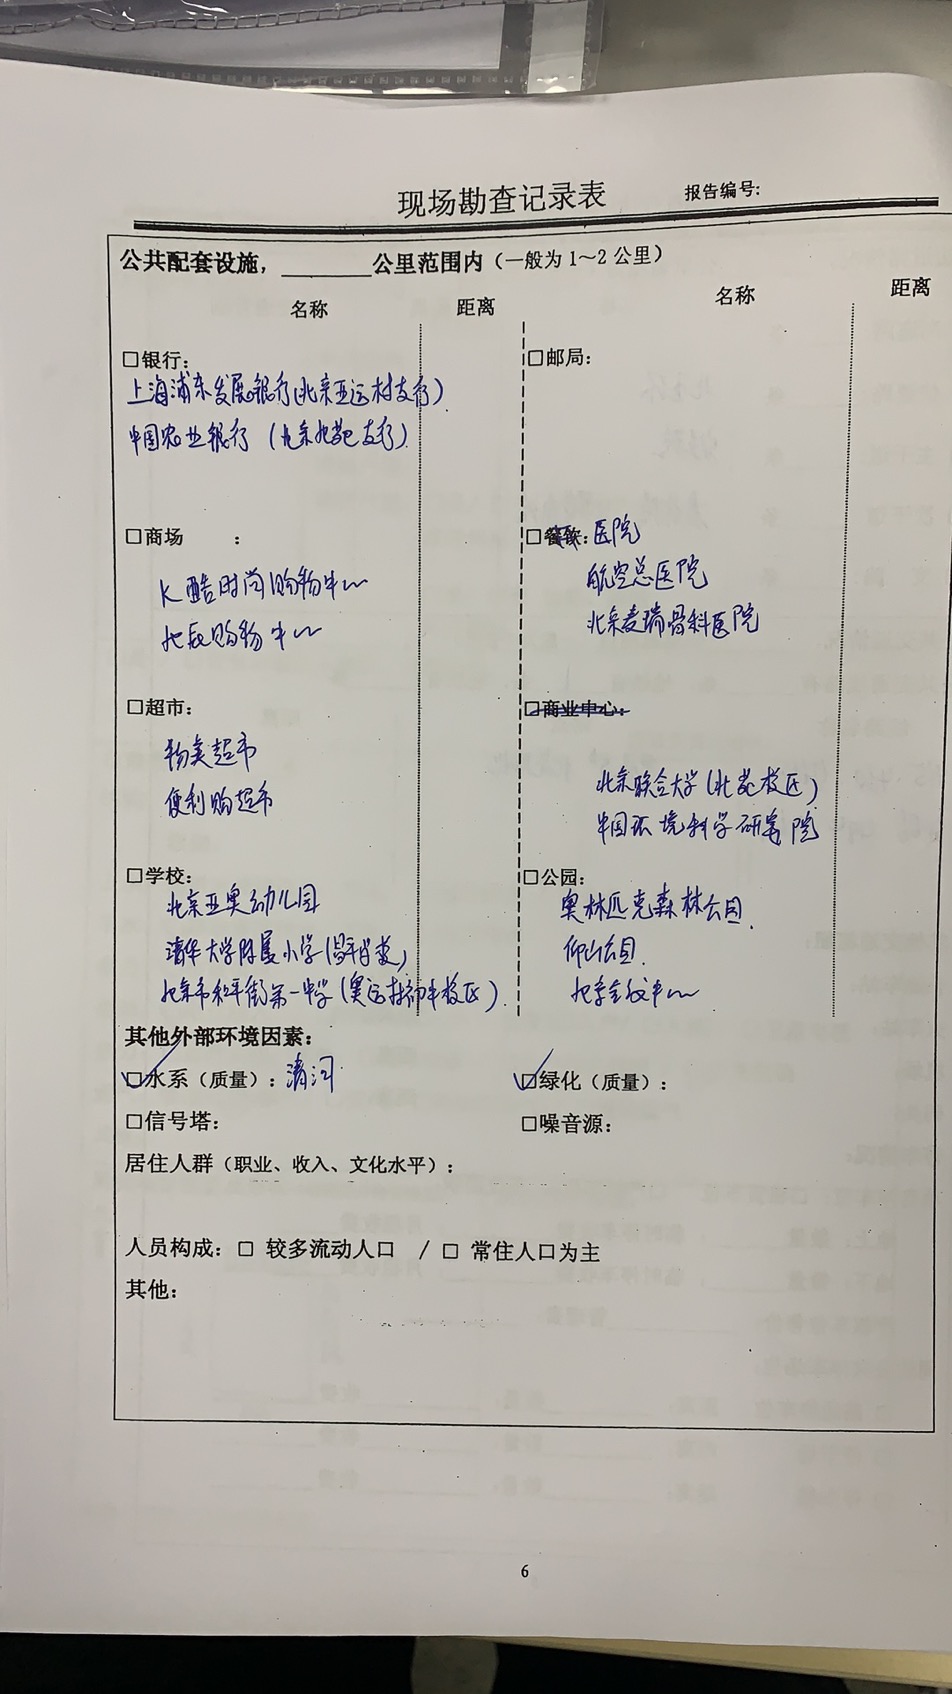 现场勘查记录表 报告编号:
公共配套设施，________公里范围内（一般为1～2公里）
名称 距离 名称 距离
□银行: □邮局:
上海浦东发展银行(北京亚运村支行)
中国农业银行（北京北苑支行）
□商场 : □餐饮: 医院
K酷时尚购物中心 航空总医院
北辰购物中心 北京麦瑞骨科医院
□超市: □商业中心:
物美超市 北京联合大学(北苑校区)
便利购超市 中国环境科学研究院
□学校: □公园:
北京亚奥幼儿园 奥林匹克森林公园.
清华大学附属小学 仰山公园.
北京市和平街第一中学(奥运村 校区).
其他外部环境因素:
□水系（质量）: 清河 □绿化（质量）:
□信号塔: □噪音源:
居住人群（职业、收入、文化水平）:
人员构成: □ 较多流动人口 / □ 常住人口为主
其他:
6